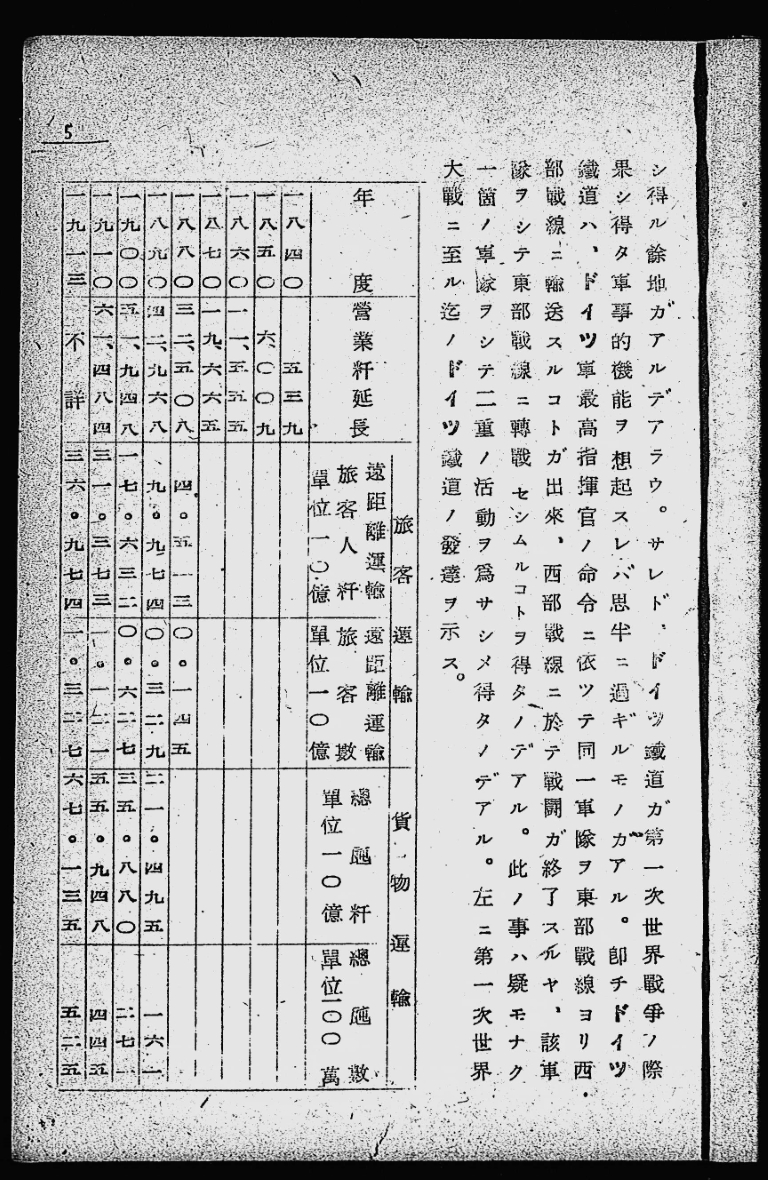 5
シ得ル餘地ガアルデアラウ。サレド、ドイツ鐵道ガ第一次世界戰爭ノ際
果シ得タ軍事的機能ヲ想起スレバ思半ニ過ギルモノガアル。卽チドイツ
鐵道ハ、ドイツ軍最高指揮官ノ命令ニ依ツテ同一軍隊ヲ東部戰線ヨリ西
部戰線ニ輸送スルコトガ出來、西部戰線ニ於テ戰鬪ガ終了スルヤ、該軍
隊ヲシテ東部戰線ニ轉戰セシムルコトヲ得タノデアル。此ノ事ハ疑モナク
一箇ノ軍隊ヲシテ二重ノ活動ヲ爲サシメ得タノデアル。左ニ第一次世界
大戰ニ至ル迄ノドイツ鐵道ノ發達ヲ示ス。
旅客運輸 貨物運輸
年度 營業粁延長 遠距離運輸旅客人粁單位一〇億 遠距離運輸旅客數單位一〇億 總瓲粁單位一〇億 總瓲數單位一〇〇萬
一八四〇 五三九
一八五〇 六、〇〇九
一八六〇 一一、五五五
一八七〇 一九、六六五
一八八〇 三二、五〇八 四。五一三 〇。一四五
一八九〇 四二、九六八 九。九七四 〇。三二九 二一。四九五 一六一
一九〇〇 五一、九四八 一七。六三二 〇。六二七 三五。八八〇 二七一
一九一〇 六一、四八四 三一。三七三 一。一二一 五五。九四八 四四五
一九一三 不詳 三六。九七四 一。三二七 六七。一三五 五二五